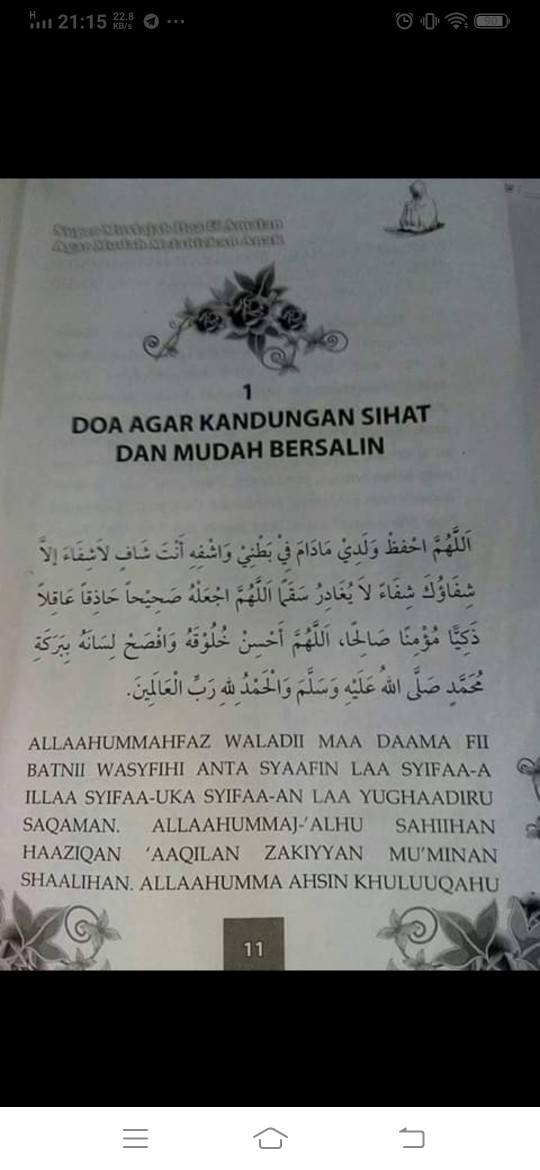 H
21:15 22.8 KB/s ...
90
Super Mustajab Doa & Amalan
Agar Mudah Melahirkan Anak
1
DOA AGAR KANDUNGAN SIHAT
DAN MUDAH BERSALIN
اَللَّهُمَّ احْفَظْ وَلَدِيْ مَادَامَ فِيْ بَطْنِيْ وَاشْفِهِ أَنْتَ شَافٍ لاَشِفَاءَ إِلاَّ
شِفَاؤُكَ شِفَاءً لاَ يُغَادِرُ سَقَمًا اَللَّهُمَّ اجْعَلْهُ صَحِيْحاً حَاذِقاً عَاقِلاً
ذَكِيًّا مُؤْمِنًا صَالِحًا، اَللَّهُمَّ أَحْسِنْ خُلُوْقَهُ وَافْصَحْ لِسَانَهُ بِبَرَكَةِ
مُحَمَّدٍ صَلَّى اللهُ عَلَيْهِ وَسَلَّمَ وَالْحَمْدُ لِلهِ رَبِّ الْعَالَمِيْنَ.
ALLAAHUMMAHFAZ WALADII MAA DAAMA FII
BATNII WASYFIHI ANTA SYAAFIN LAA SYIFAA-A
ILLAA SYIFAA-UKA SYIFAA-AN LAA YUGHAADIRU
SAQAMAN. ALLAAHUMMAJ-'ALHU SAHIIHAN
HAAZIQAN 'AAQILAN ZAKIYYAN MU'MINAN
SHAALIHAN. ALLAAHUMMA AHSIN KHULUUQAHU
11